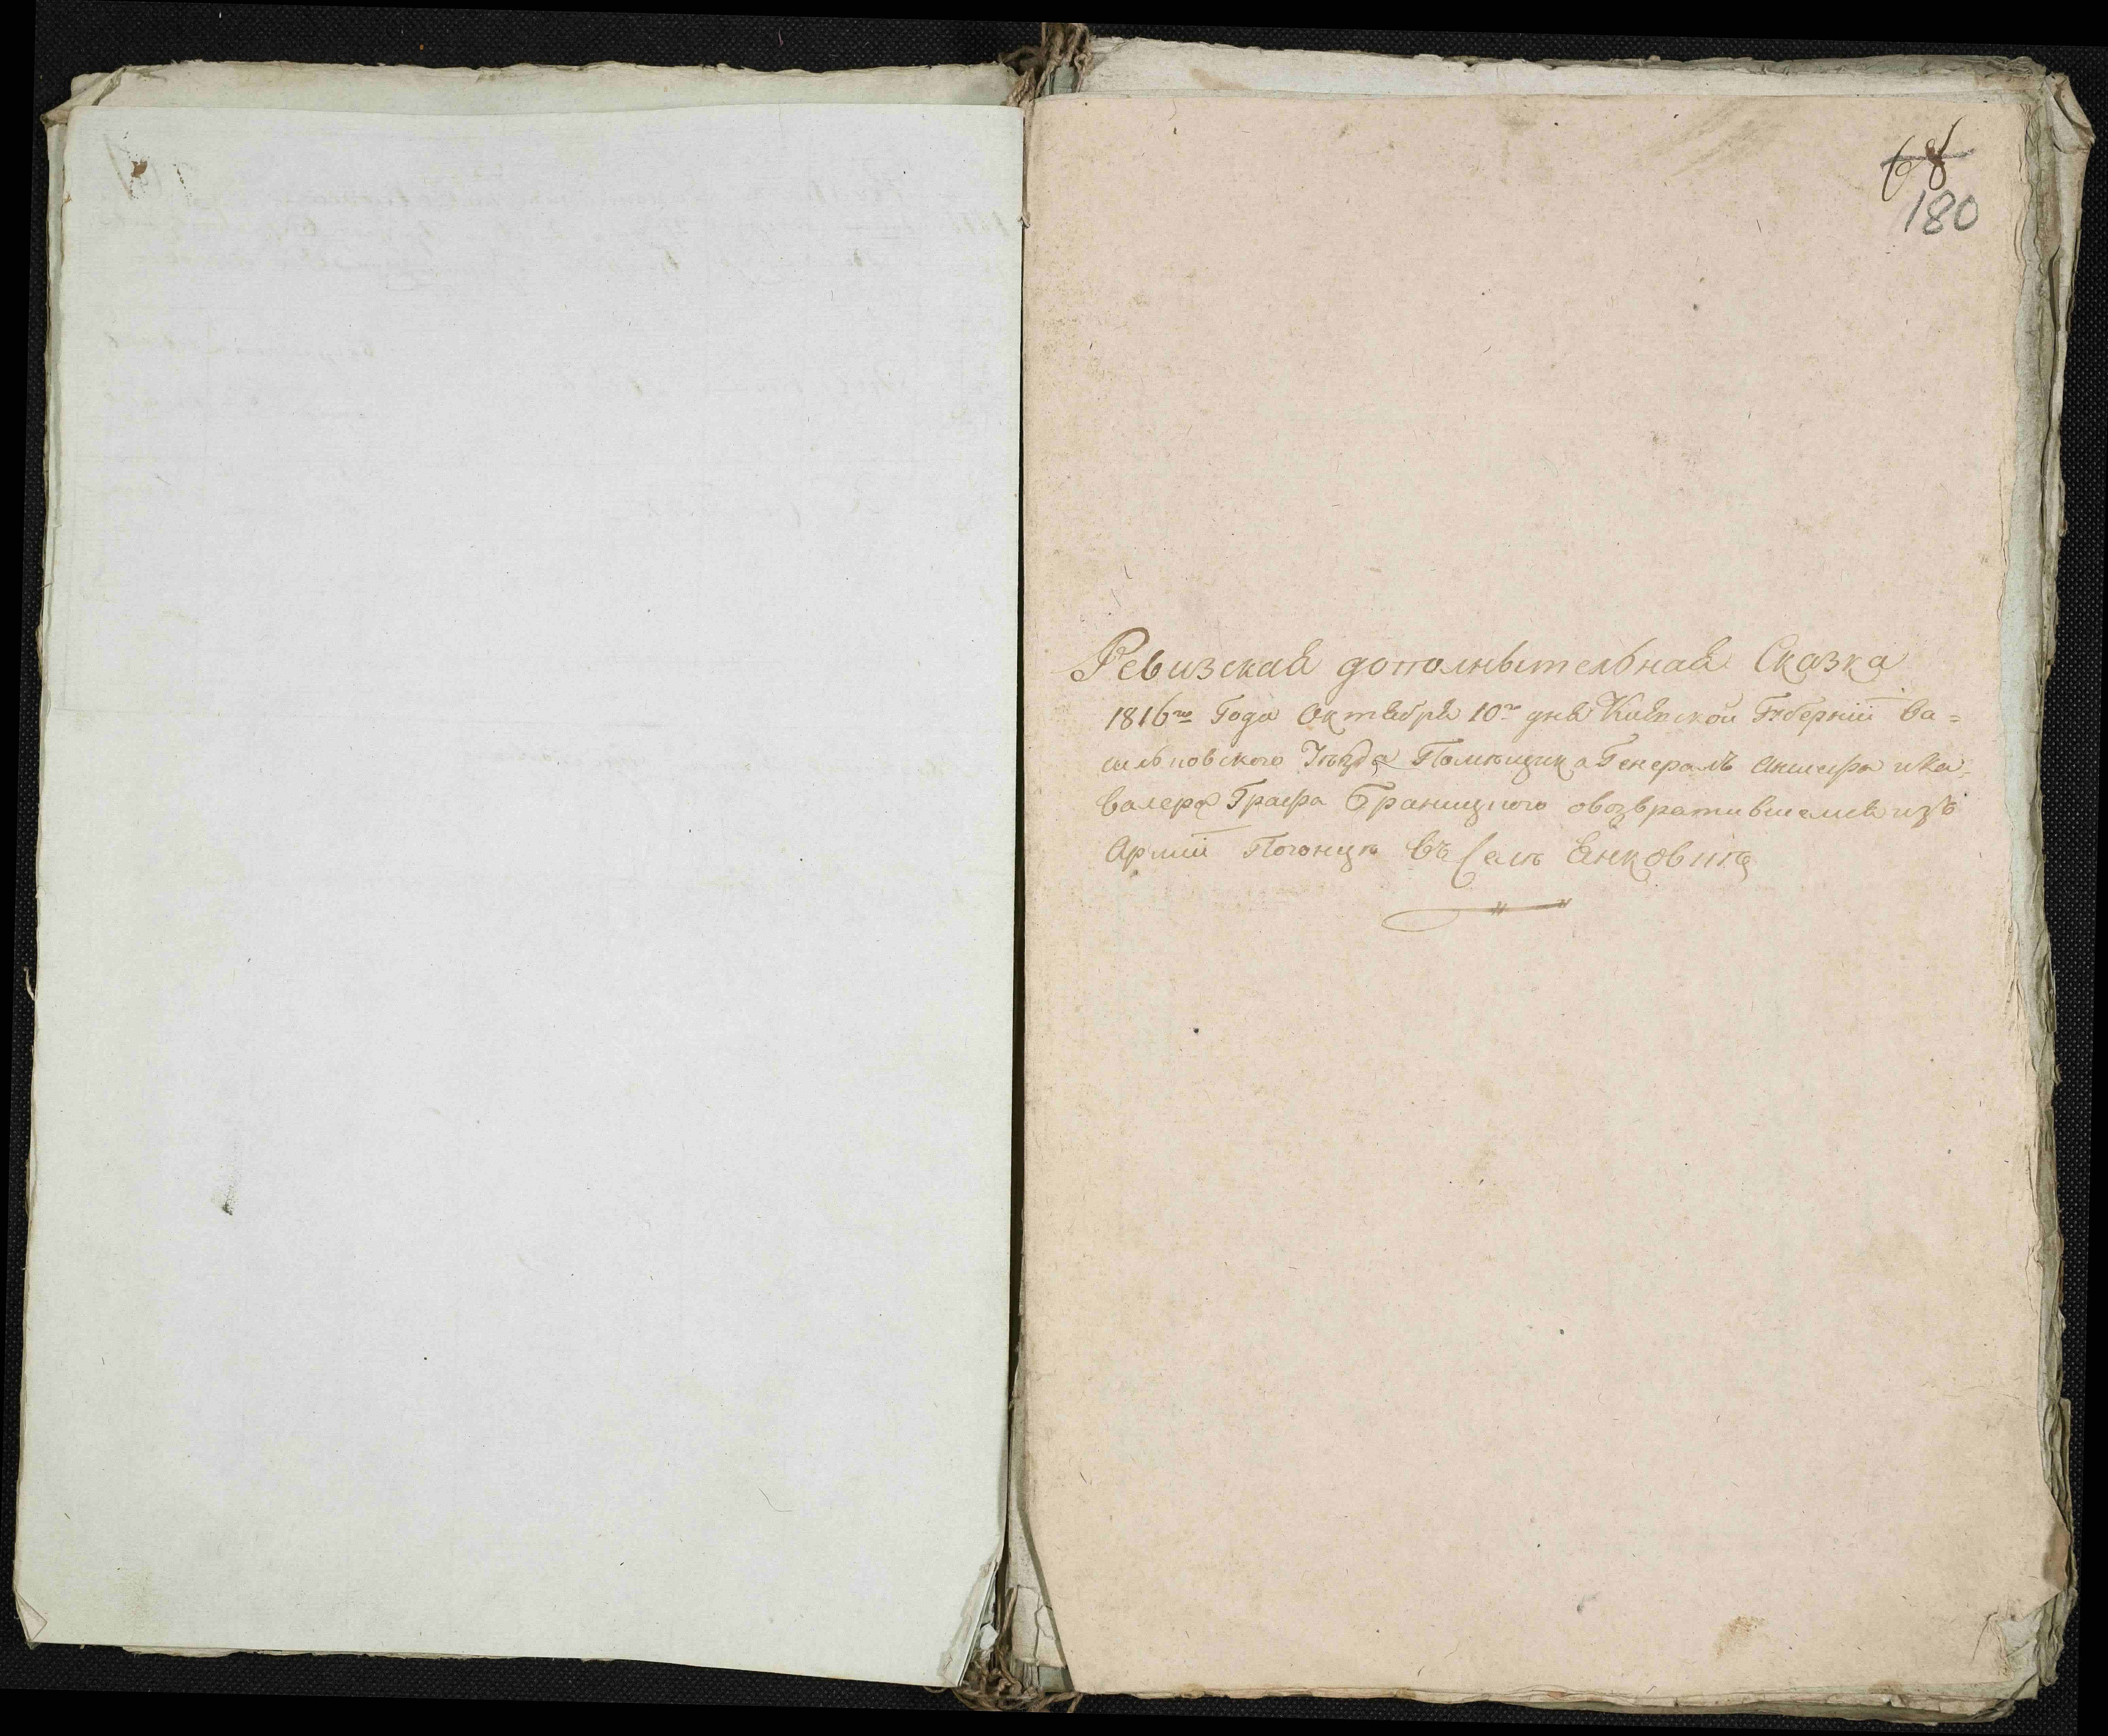 68
180
Ревизская дополнытельная Сказка
1816го Года Октября 10го дня Кіевской Губерніи Ва=
сильковского Уѣзда Помѣщика Генералъ Аншефа и Ка=
валера Графа Браницкого овозвратившемся изъ
Арміи Погонцѣ въ Селѣ Янковкѣ